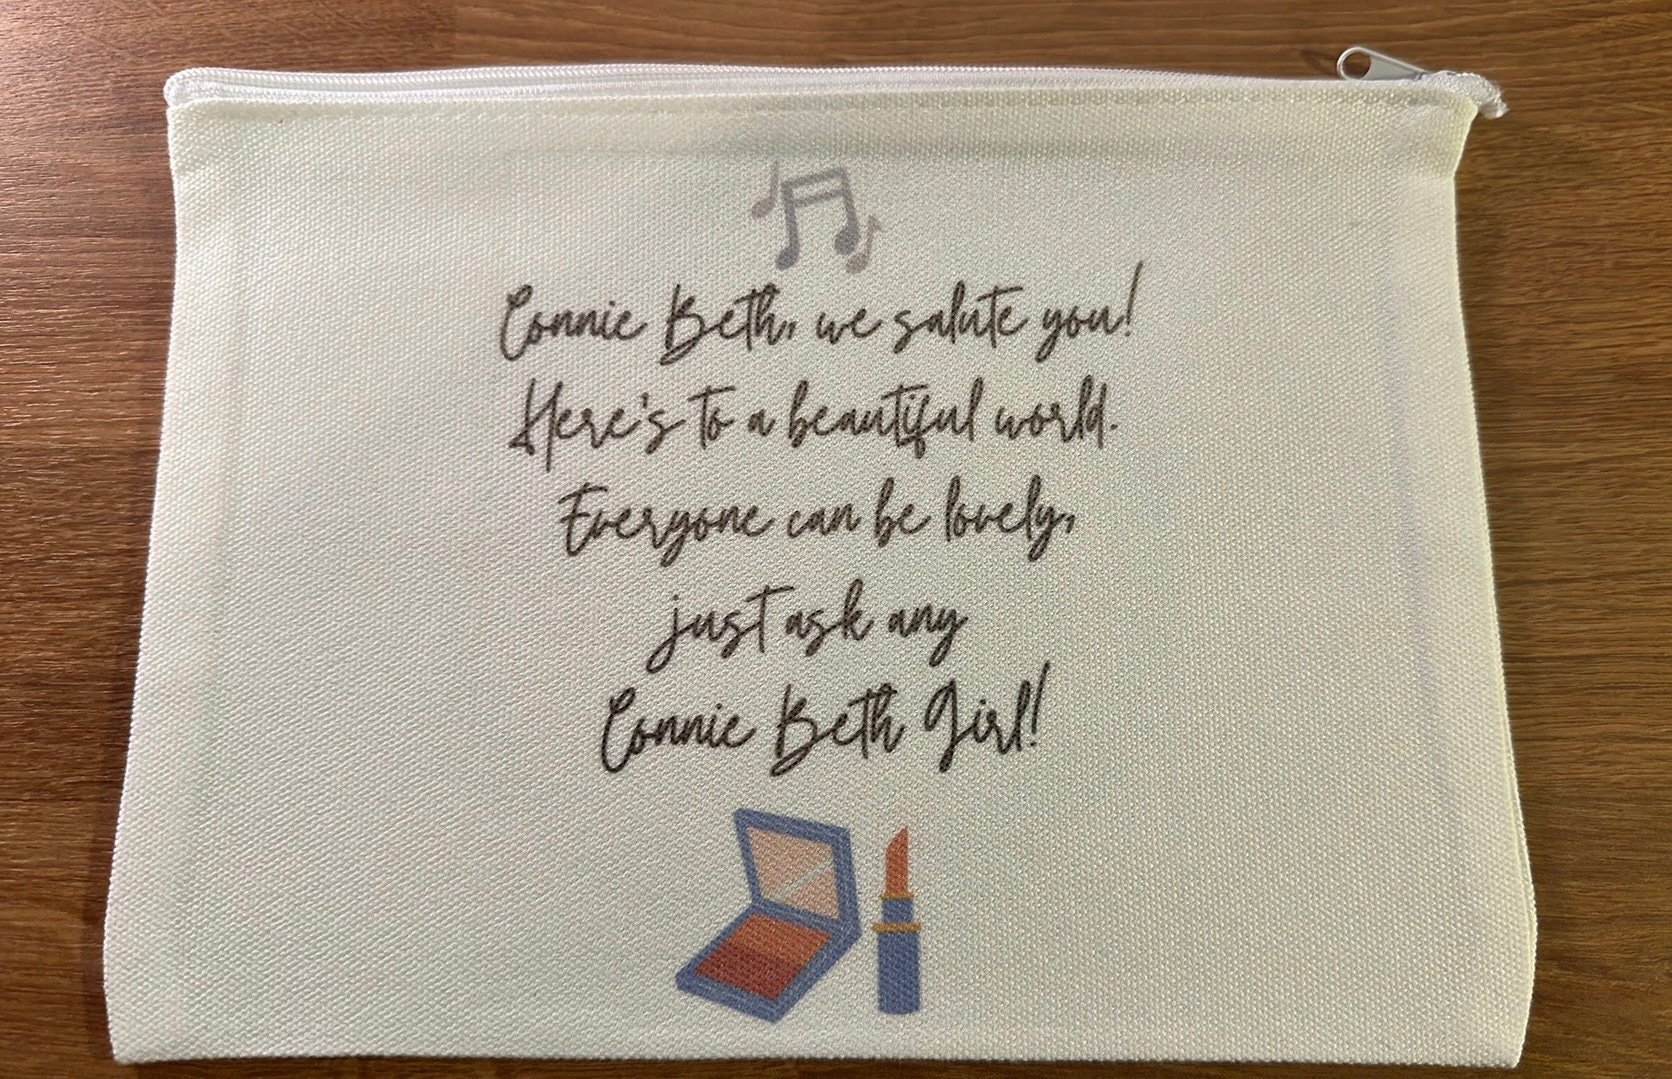 Connie Beth, we salute you!
Here's to a beautiful world.
Everyone can be lovely,
just ask any
Connie Beth Girl!